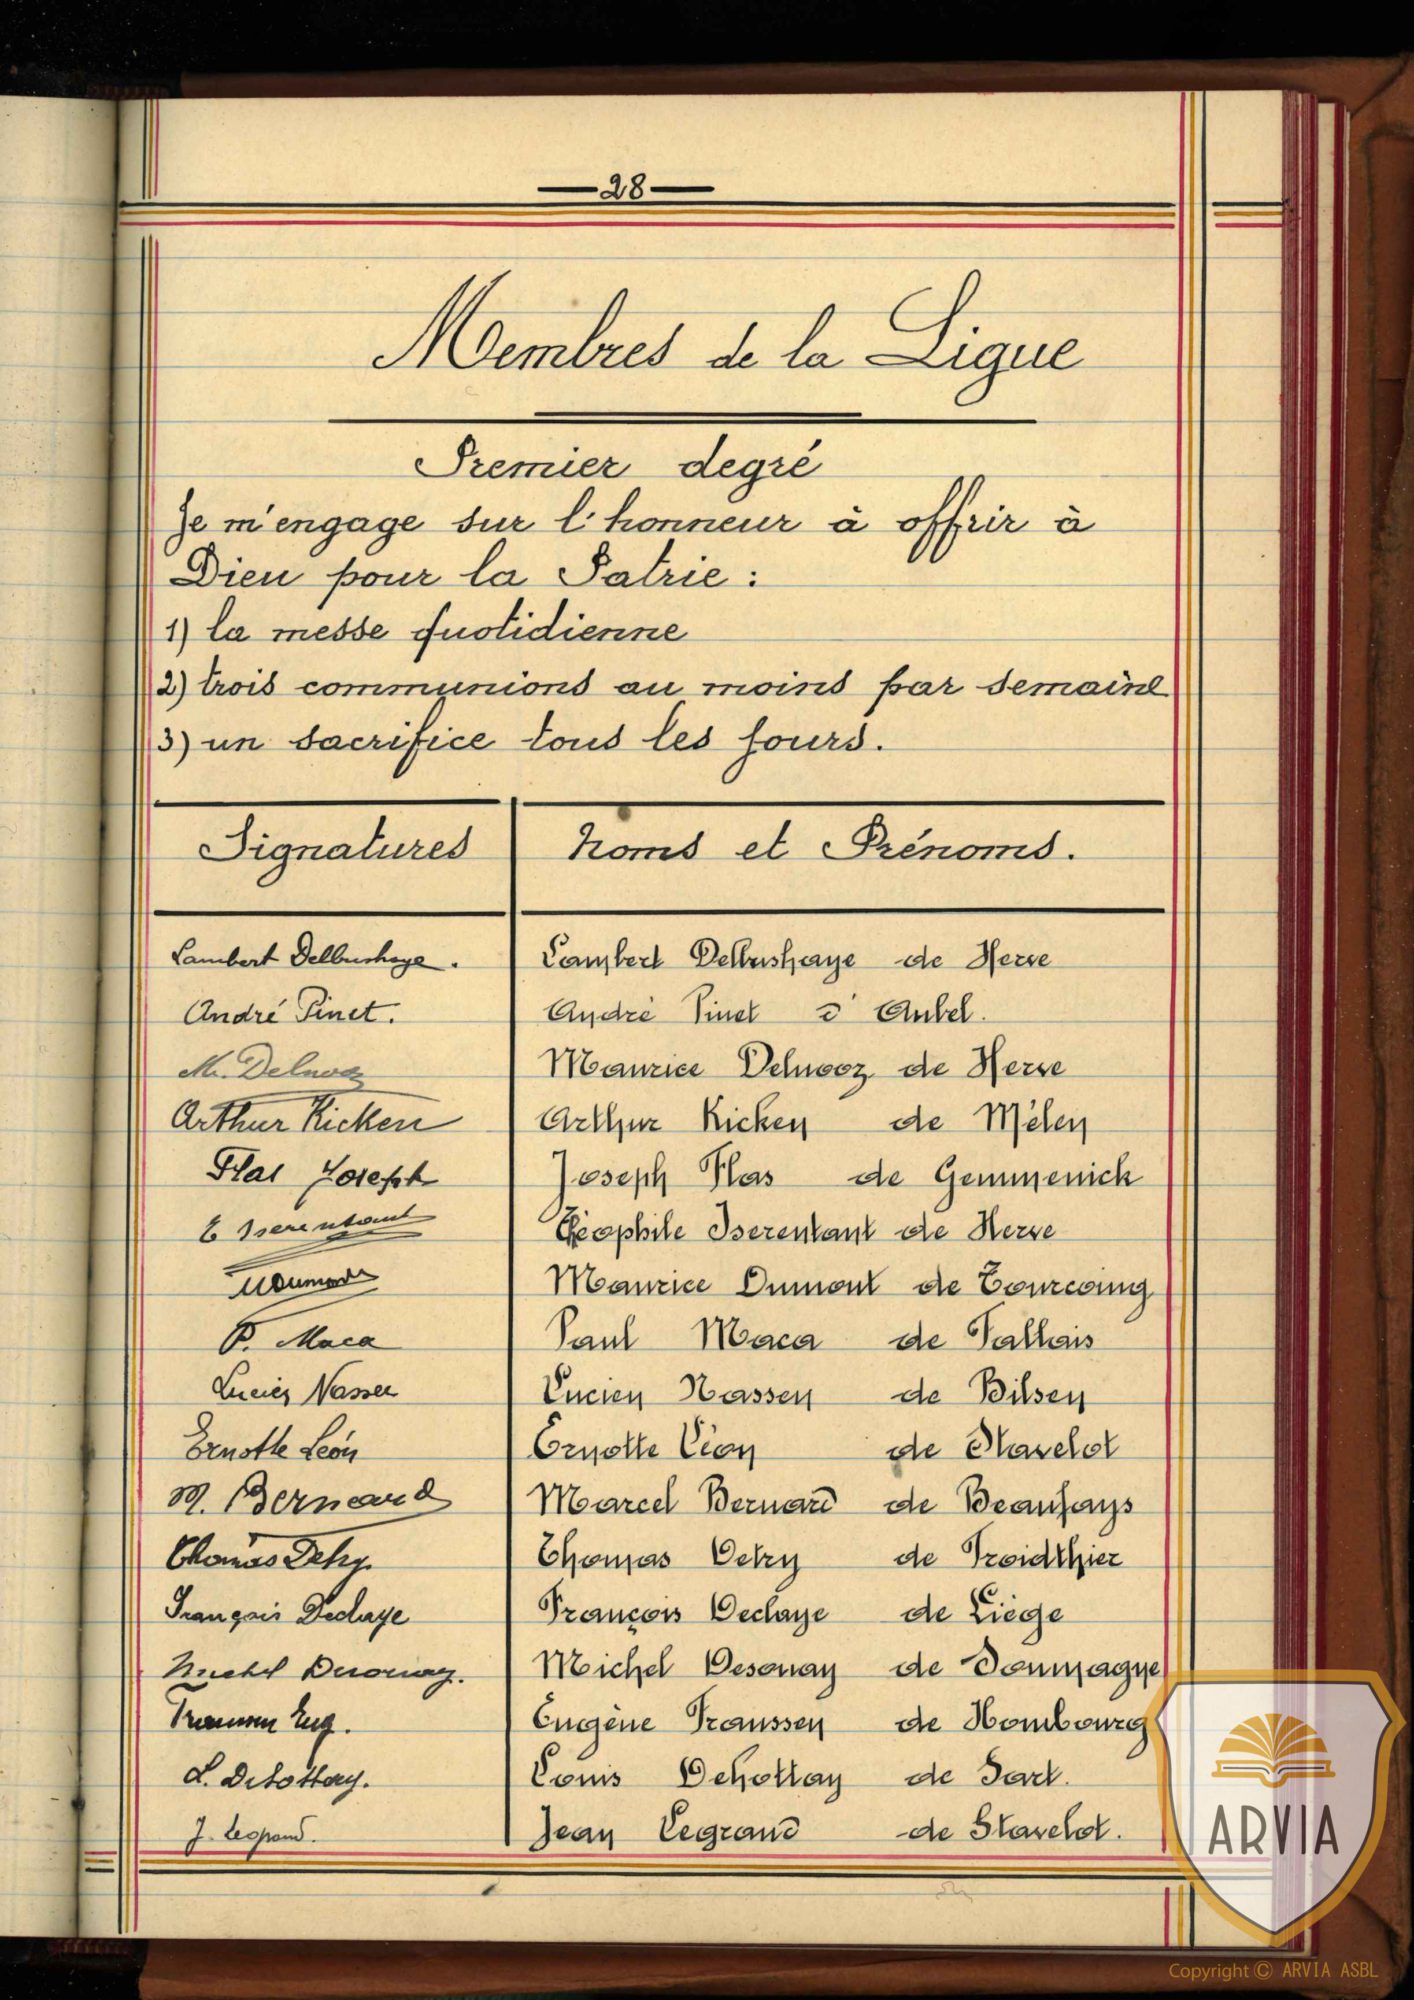 —28—
Membres de la Ligue
Premier degré
Je m'engage sur l'honneur à offrir à
Dieu pour la Patrie :
1) la messe quotidienne
2) trois communions au moins par semaine
3) un sacrifice tous les jours.
Signatures Noms et Prénoms.
Lambert Delbushaye. Lambert Delbushaye de Herve
André Pinet. André Pinet d'Aubel.
M. Delnooz Maurice Delnooz de Herve
Arthur Kicken Arthur Kicken de Mélen
Flas Joseph Joseph Flas de Gemmenich
T Iserentant Théophile Iserentant de Herve
MDumont Maurice Dumont de Tourcoing
P. Maca Paul Maca de Fallais
Lucien Nassen Lucien Nassen de Bilsen
Ernotte Léon Ernotte Léon de Stavelot
M. Bernard Marcel Bernard de Beaufays
Thomas Detry Thomas Detry de Froidthier
François Declaye François Declaye de Liège
Michel Desonay. Michel Desonay de Soumagne
Eug. Eugène Franssen de Hombourg
L. Dehottay. Louis Dehottay de Sart.
J. Legrand. Jean Legrand de Stavelot.
ARVIA
Copyright © ARVIA ASBL